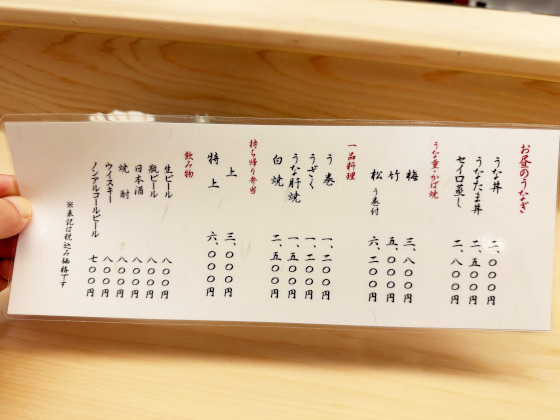 お昼のうなぎ
うな丼 二、〇〇〇円
うなたま丼 二、五〇〇円
セイロ蒸し 二、八〇〇円
うな重・かば焼
梅 三、八〇〇円
竹 五、〇〇〇円
松 う巻付 六、二〇〇円
一品料理
う巻 一、二〇〇円
うざく 一、二〇〇円
うな肝焼 一、五〇〇円
白焼 二、五〇〇円
持ち帰り弁当
上 三、〇〇〇円
特上 六、〇〇〇円
飲み物
生ビール 八〇〇円
瓶ビール 八〇〇円
日本酒 八〇〇円
焼酎 八〇〇円
ウイスキー 八〇〇円
ノンアルコールビール 七〇〇円
※表記は税込み価格です